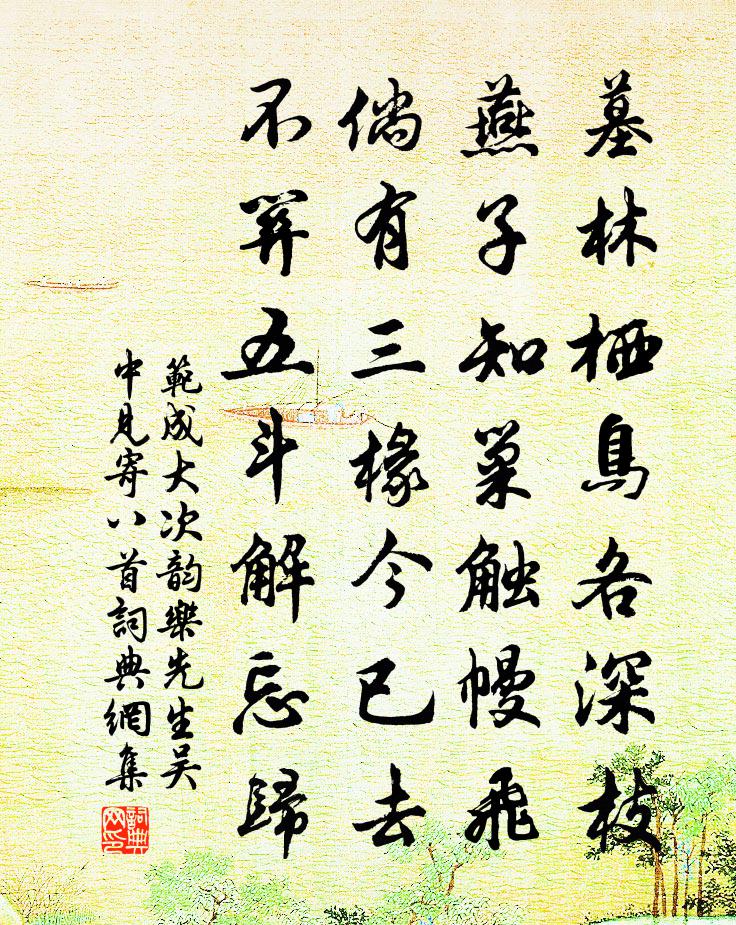 墓林栖鳥各深枝
燕子知巢触幔飛
倘有三椽今已去
不算五斗解忘歸
範成大次韵樂先生吴
中見寄八首詞典網集
詞典
网印